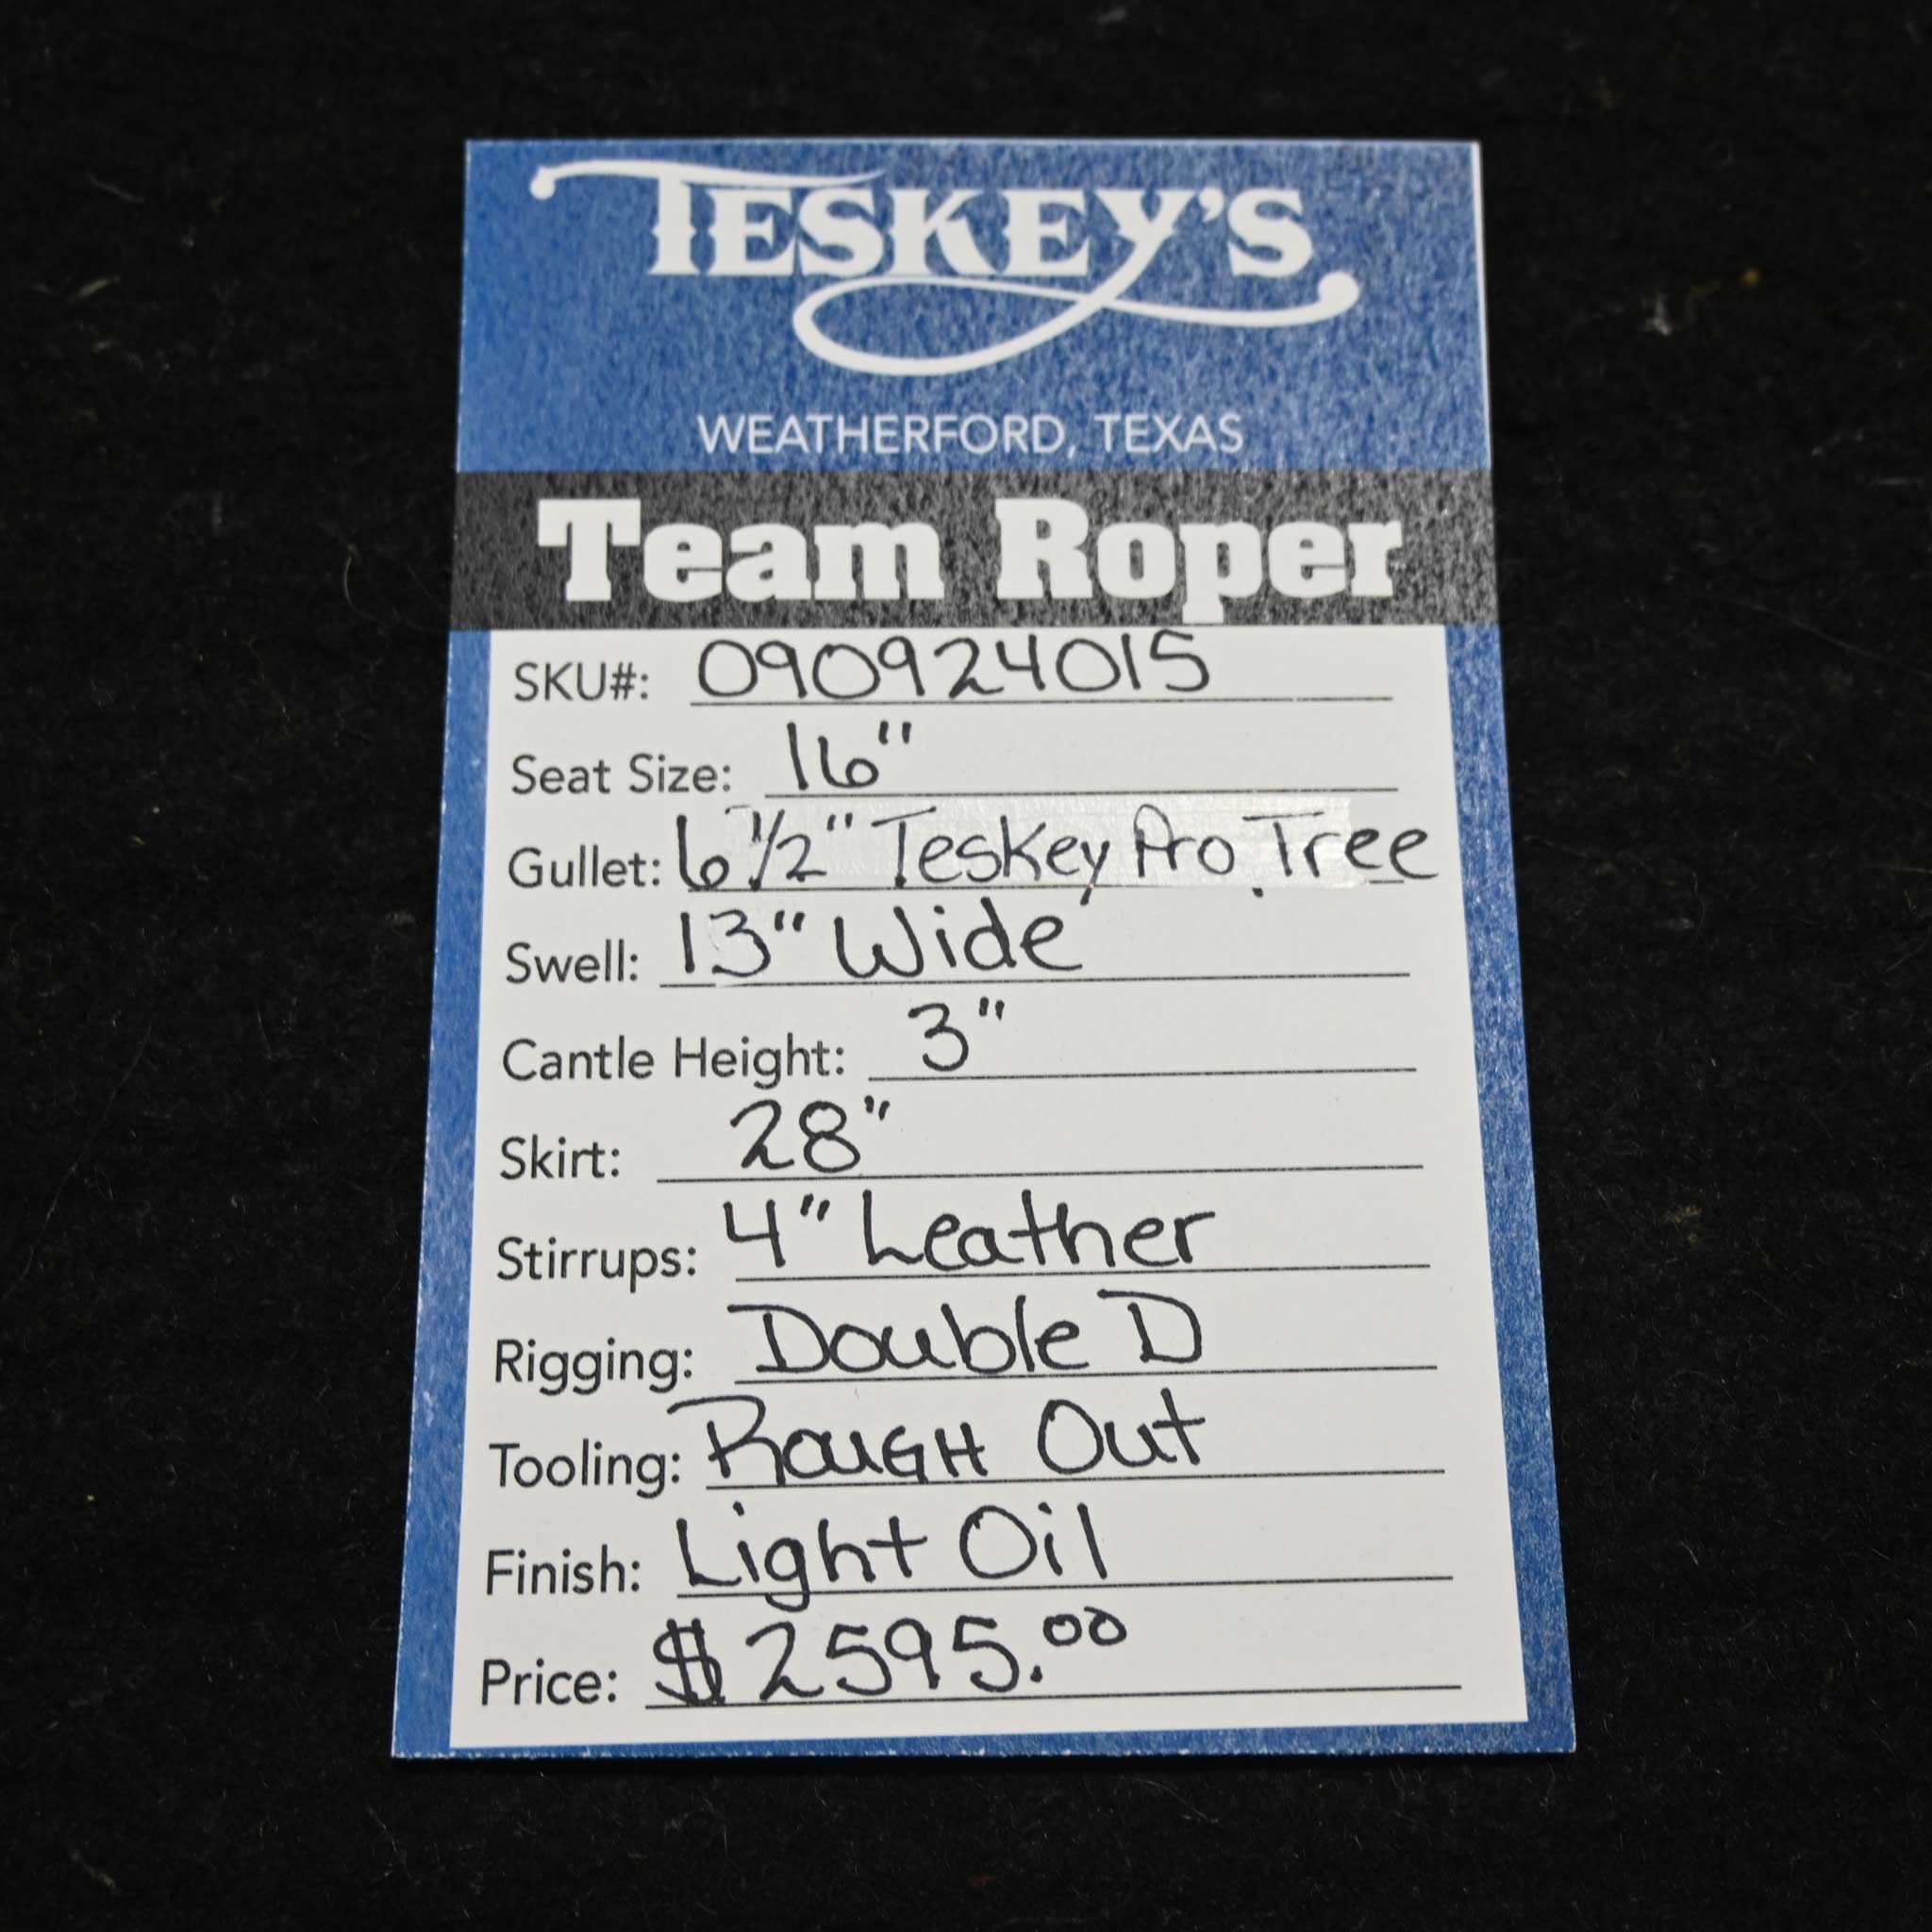 TESKEY'S
WEATHERFORD, TEXAS
Team Roper
SKU#: 090924015
Seat Size: 16"
Gullet: 6 1/2" Teskey Pro Tree
Swell: 13" Wide
Cantle Height: 3"
Skirt: 28"
Stirrups: 4" Leather
Rigging: Double D
Tooling: RouGH Out
Finish: Light Oil
Price: $2595.00